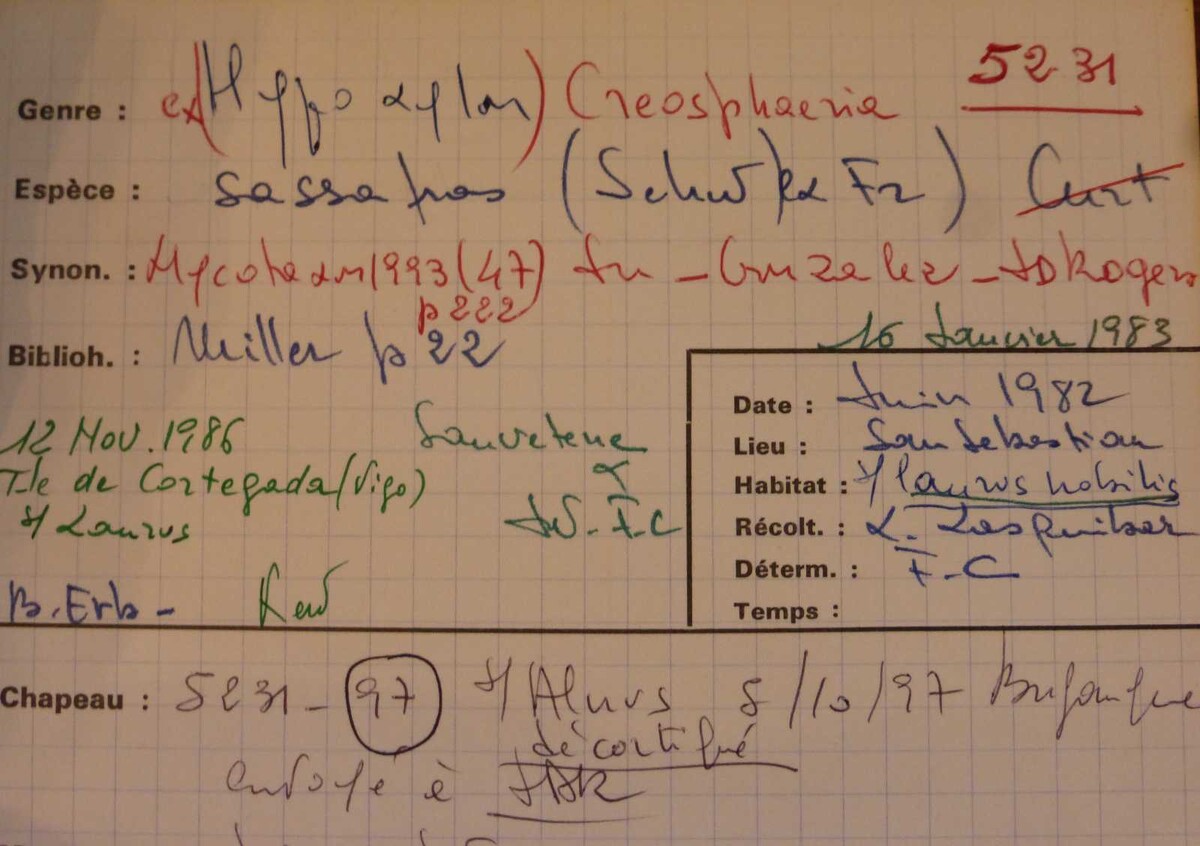 Genre : ex (Hypoxylon) Creosphaeria 5231
Espèce : sassafras (Schw) ex Fr) Curt
Synon. : Mycotaxon 1993 (47) Ju - Gonzalez - JD Rogers
p 222
Biblioh. : Miller p 22
16 Janvier 1983
Date : Juin 1982
Lieu : San Sebastian
Habitat : s/ laurus nobilis
Récolt. : L. Lasquibar
Déterm. : F-C
Temps :
12 Nov. 1986
Ile de Cortegada (Vigo)
s/ Laurus
Sauveterre
F.C
B. Erb -
Chapeau : 5231 - 97 s/ Alnus 8/10/97
décortiqué
envoyé à JDR